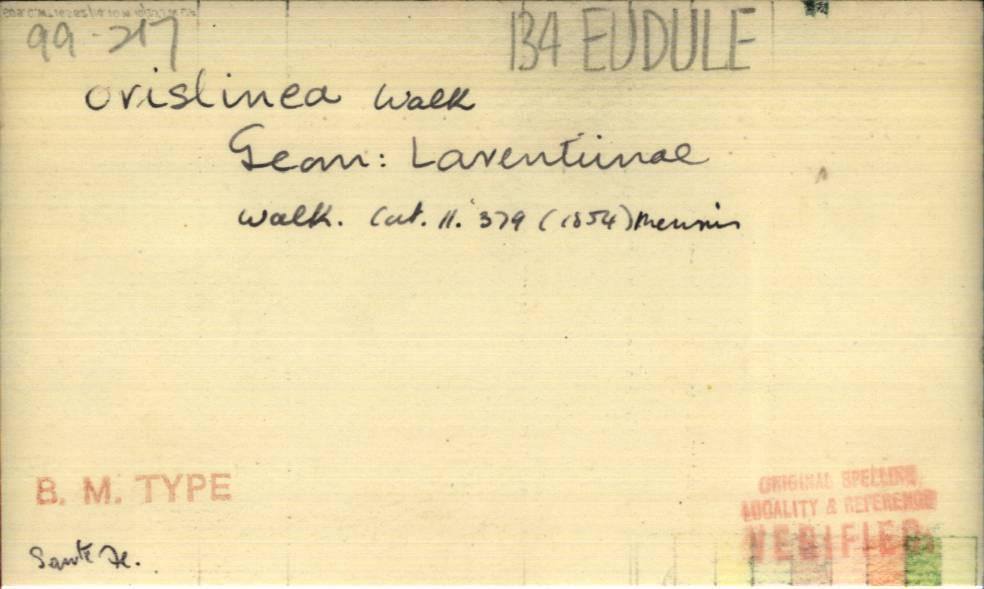 99-217
134 EUDULE
orislinea Walk
Geom: Larentiinae
Walk. Cat. 11. 379 (1854)
B. M. TYPE
ORIGINAL SPELLING
LOCALITY & REFERENCE
VERIFIED.
Sante Fe.